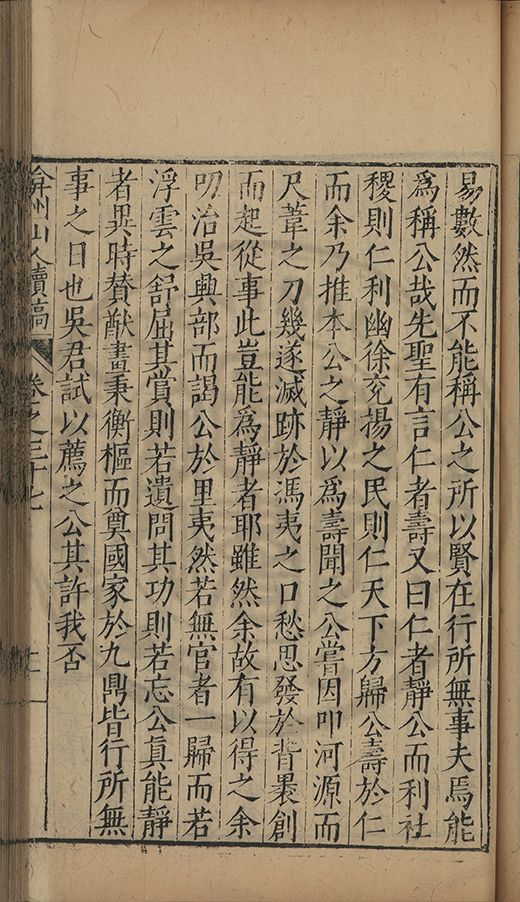 易數然而不能稱公之所以賢在行所無事夫焉能
為稱公哉先聖有言仁者壽又曰仁者靜公而利社
稷則仁利幽徐兗揚之民則仁天下方歸公壽於仁
而余乃推本公之靜以為壽聞之公嘗因叩河源而
尺葦之刀幾遂滅跡於馮夷之口愁思發於背裹創
而起從事此豈能為靜者耶雖然余故有以得之余
叨治吳興部而謁公於里夷然若無官者一歸而若
浮雲之舒屈其賞則若遺問其功則若忘公眞能靜
者異時贊猷畫秉衡樞而奠國家於九鼎皆行所無
事之日也吳君試以薦之公其許我否
弇州山人續稿 卷之三十七